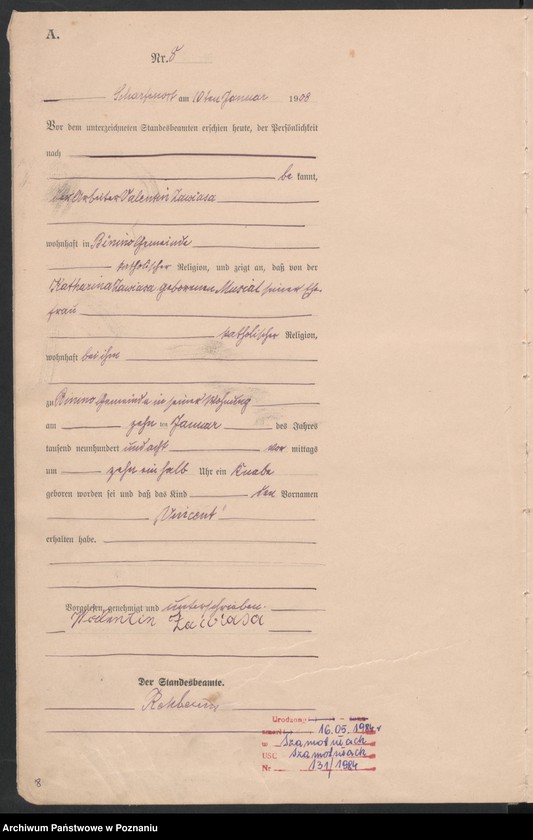 A.
Nr. 8
Scharfenort am 10ten Januar 1908
Vor dem unterzeichneten Standesbeamten erschien heute, der Persönlichkeit
nach
be kannt,
der Arbeiter Valentin Zawiasa
wohnhaft in Binino Gemeinde
katholischer Religion, und zeigt an, daß von der
Katharina Zawiasa geborenen Musial seiner Ehe-
frau
katholischer Religion,
wohnhaft bei ihm
zu Binino Gemeinde in seiner Wohnung
am zehn ten Januar des Jahres
tausend neunhundert und acht vor mittags
um zehn ein halb Uhr ein Knabe
geboren worden sei und daß das Kind den Vornamen
Vincent
erhalten habe.
Vorgelesen, genehmigt und unterschrieben.
Walentin Zawiasa
Der Standesbeamte.
Urodzony
zmarł 16.05.1984 r
w Szamotułach
USC Szamotułach
Nr 131/1984
8
Archiwum Państwowe w Poznaniu